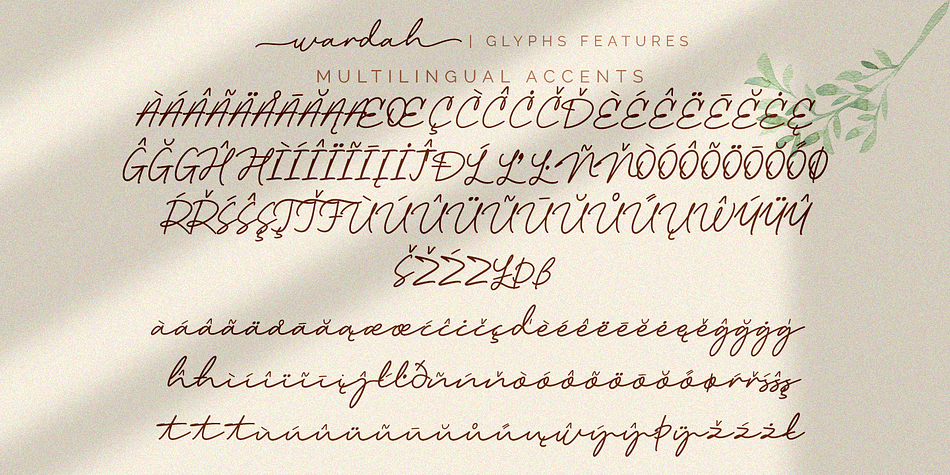 wardah | GLYPHS FEATURES
MULTILINGUAL ACCENTS
ÀÁÂÃÄÅĀĂĄÆŒÇĈĊČĎÈÉÊËĒĔĖĘ
ĜĞGĤĦÌÍÎÏĨĪĮİĴĐĹĽĿÑŇÒÓÔÕÖŌŎŐØ
ŔŘŚŜŞŢŤŦÙÚÛÜŨŪŬŮŰŲŴÝŸŶ
ŠŽŹZŁÞß
àáâãäåāăąæœćĉċčçďèéêëēĕėęěĝğġģ
ĥħìíîïĩīįĵłŀðñńňòóôõöōŏőøŕřśŝş
ùúûüũūŭůűųŵýŷþÿžźżł